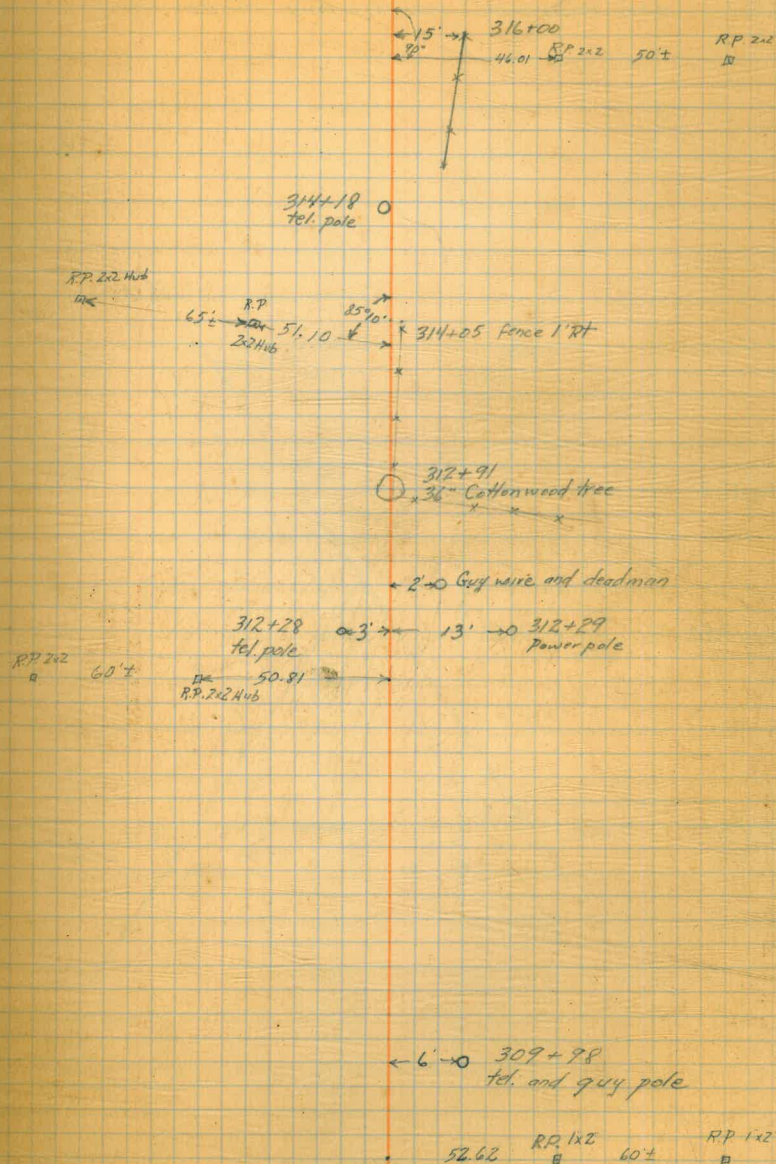 15' 316+00
90°
46.01 R.P. 2x2 50'± R.P. 2x2
314+18
tel. pole
R.P. 2x2 Hub
65'± R.P 51.10 85°10'
2x2 Hub
314+05 fence 1' Rt
312+91
36" Cottonwood tree
2' Guy wire and deadman
312+28 3' 13' 312+29
tel. pole Power pole
R.P. 2x2 60'± 50.81
R.P. 2x2 Hub
6' 309+98
tel. and guy pole
52.62 R.P. 1x2 60'± R.P 1x2